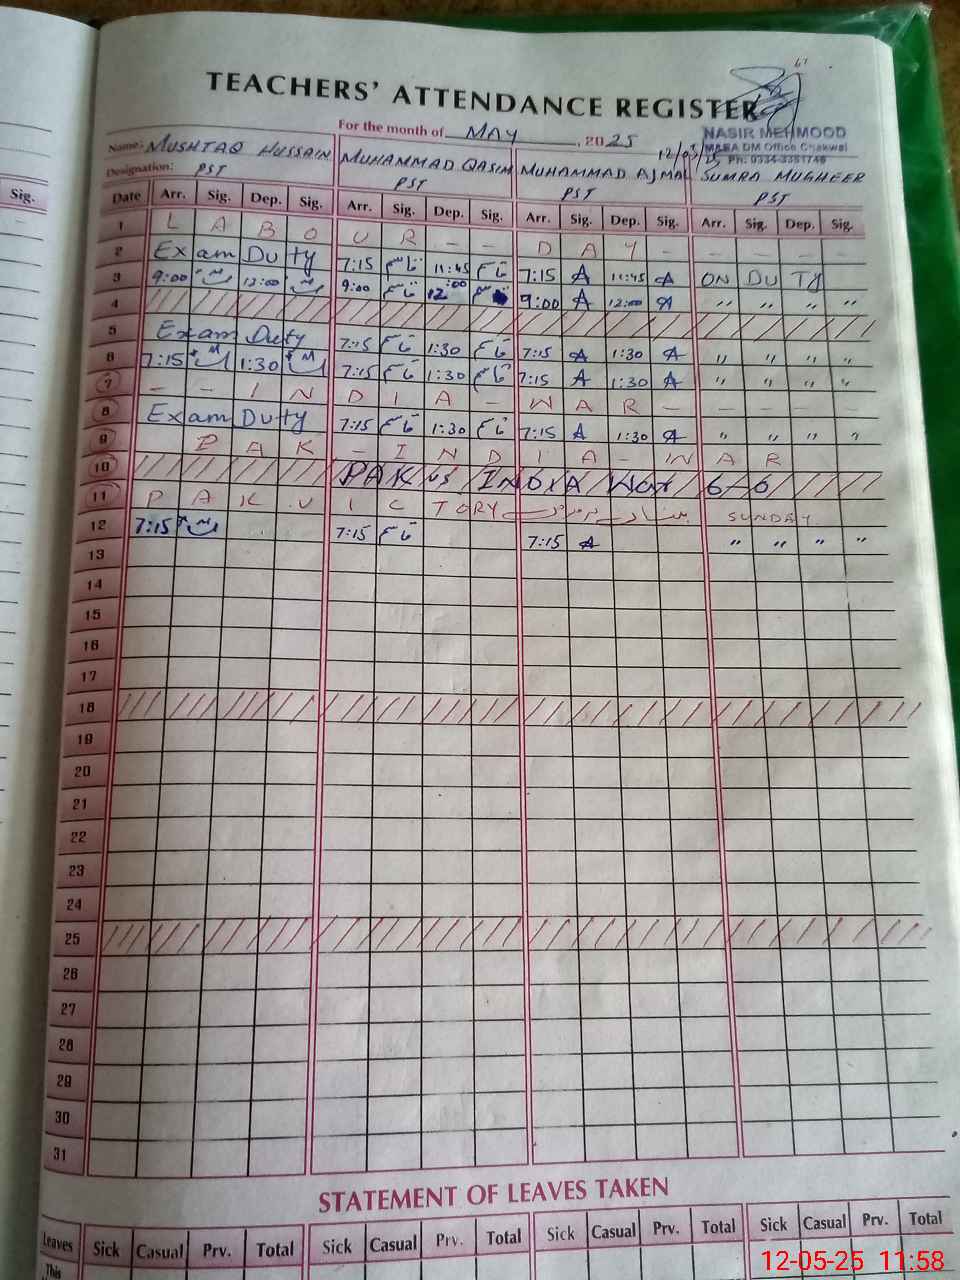 TEACHERS' ATTENDANCE REGISTER
For the month of MAY, 2025
NASIR MEHMOOD
MAEA DM Office Chakwal
Ph: 0334-3351746
Name: MUSHTAQ HUSSAIN MUHAMMAD QASIM MUHAMMAD AJMAL SUMRA MUGHEER
Designation: PST PST PST PST
Date Arr. Sig. Dep. Sig. Arr. Sig. Dep. Sig. Arr. Sig. Dep. Sig. Arr. Sig. Dep. Sig.
Sig.
1 L A B O U R - - D A Y - - - - -
2 Exam Duty 7:15 11:45 7:15 A 11:45 A ON DUTY
3 9:00 12:00 9:00 12:00 9:00 A 12:00 A " " " "
4
5 Exam Duty 7:15 1:30 7:15 A 1:30 A " " " "
6 7:15 1:30 7:15 1:30 7:15 A 1:30 A " " " "
7 - - I N D I A - W A R - - - - -
8 Exam Duty 7:15 1:30 7:15 A 1:30 A " " " "
9 P A K - I N D I A - W A R
10 PAK vs INDIA War 6-0
11 P A K V I C TORY SUNDAY
12 7:15 7:15 7:15 A " " " "
13
14
15
16
17
18
19
20
21
22
23
24
25
26
27
28
29
30
31
STATEMENT OF LEAVES TAKEN
Leaves Sick Casual Prv. Total Sick Casual Prv. Total Sick Casual Prv. Total Sick Casual Prv. Total
This
12-05-25 11:58